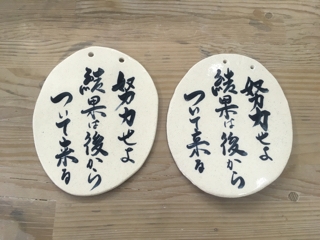 努力せよ
結果は後から
ついて来る
努力せよ
結果は後から
ついて来る